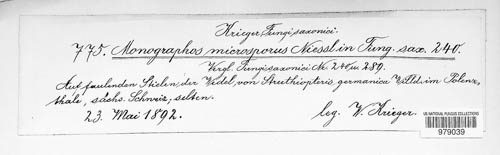 Krieger, Fungi saxonici.
775. Monographos microsporus Niessl in Fung. sax. 240.
Vergl. Fungi saxonici Nr. 240 u. 289.
Auf faulenden Stielen der Wedel von Struthiopteris germanica Willd. im Polenz-
thale, sächs. Schweiz, selten.
23. Mai 1892. leg. W. Krieger.
US NATIONAL FUNGUS COLLECTIONS
979039